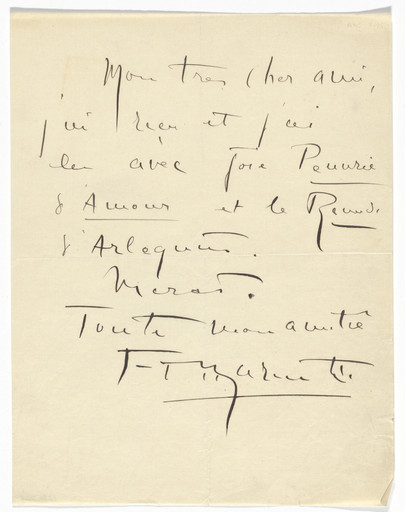 Mon tres cher ami,
j'ai reçu et j'ai
lu avec joie Penurie
d'Amour et le
d'Arlequin.
Merci.
Toute mon amitié
F-T Marinetti.